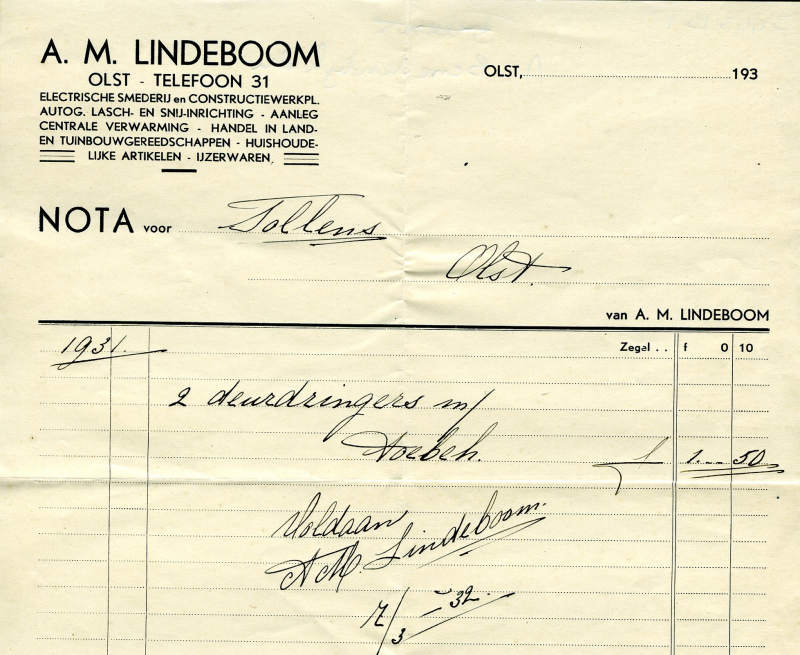 A. M. LINDEBOOM
OLST - TELEFOON 31
ELECTRISCHE SMEDERIJ en CONSTRUCTIEWERKPL.
AUTOG. LASCH- EN SNIJ-INRICHTING - AANLEG
CENTRALE VERWARMING - HANDEL IN LAND-
EN TUINBOUWGEREEDSCHAPPEN - HUISHOUDE-
LIJKE ARTIKELEN - IJZERWAREN
OLST, 193
NOTA voor Tollens
Olst.
van A. M. LINDEBOOM
1931. Zegel . . f 0 10
2 deurdringers m/
toebeh. f 1.-- 50
Voldaan
A M. Lindeboom.
7/3 - 32